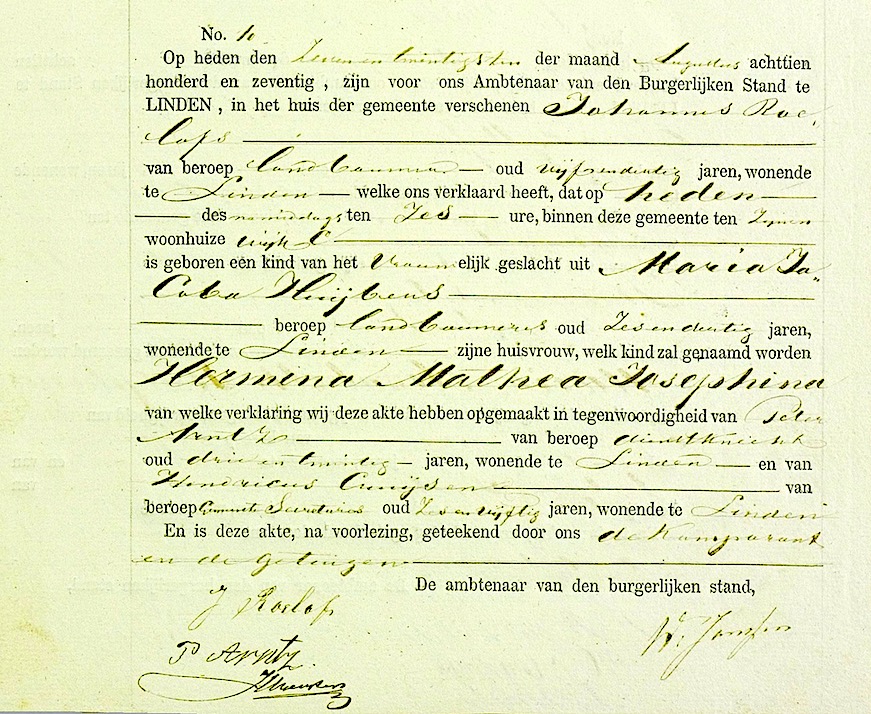 No. 10
Op heden den Zeven en twintigsten der maand Augustus achttien
honderd en zeventig , zijn voor ons Ambtenaar van den Burgerlijken Stand te
LINDEN , in het huis der gemeente verschenen Johannes Roe,
lofs
van beroep landbouwer oud vijfendertig jaren, wonende
te Linden welke ons verklaard heeft, dat op heden
des namiddags ten Zes ure, binnen deze gemeente ten Zijnen
woonhuize wijk C
is geboren een kind van het Vrouwelijk geslacht uit Maria Ja"
Coba Huijbens
beroep landbouweres oud Zesendertig jaren,
wonende te Linden zijne huisvrouw, welk kind zal genaamd worden
Hermina Mathea Josephina
van welke verklaring wij deze akte hebben opgemaakt in tegenwoordigheid van Peter
Arntz van beroep dienstknecht
oud drie en twintig jaren, wonende te Linden en van
Hendricus van
beroep Gemeente Secretaris oud Zes en vijftig jaren, wonende te Linden
En is deze akte, na voorlezing, geteekend door ons de Komparant
en de Getuigen
De ambtenaar van den burgerlijken stand,
J Roelofs
P Arntz